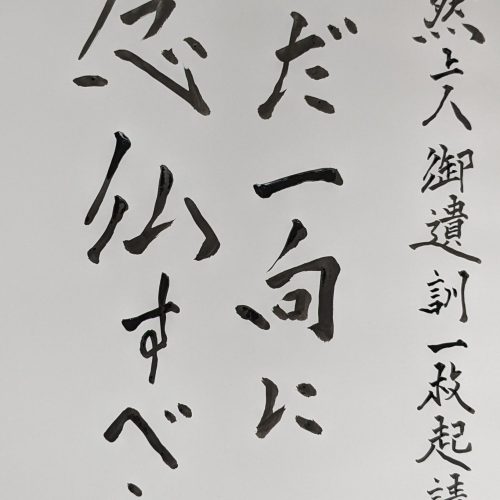 然上人御遺訓一枚起請
だ一向に
念仏すべ